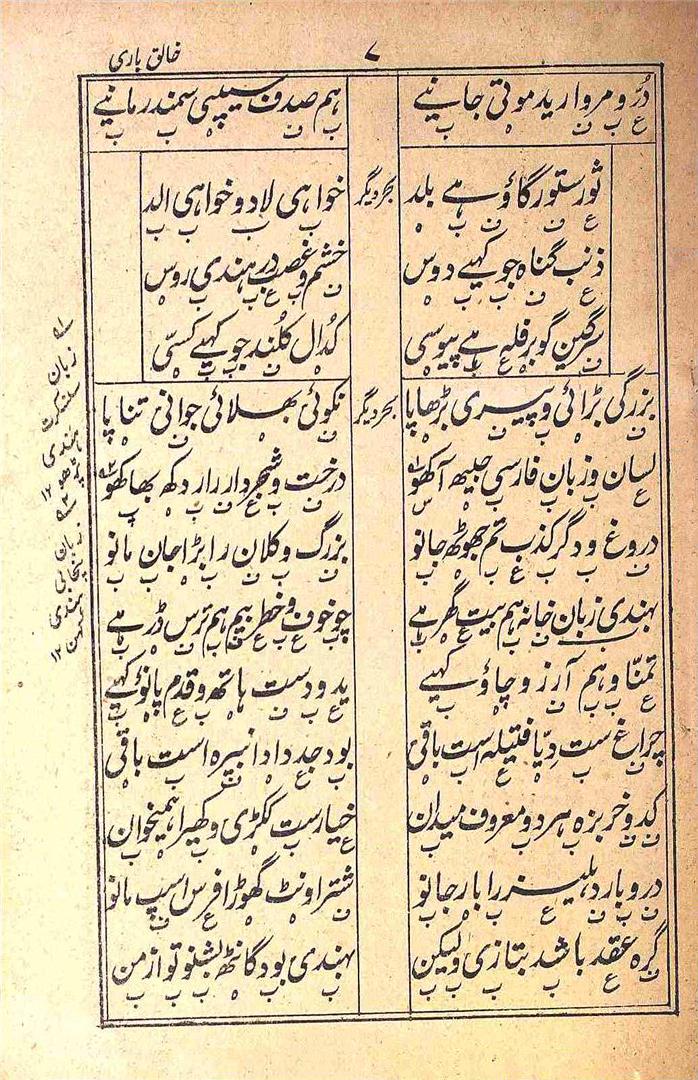 خالق باری
۷
دُرّ و مروارید موتی جانیے
ہم صدف سیپی سمندر مانیے
بحر دیگر
ثور ستور گاؤ ہے بلد
خواہی لاد و خواہی الد
ذنب گناہ جو کہیے دوس
خشم و غصب در ہندی روس
سرگین گوبر فلہ ہے پیوسی
کدال کلند جو کہیے کسّی
بحر دیگر
بزرگی بڑائی و پیری بڑھاپا
نکوئی بھلائی جوانی تناپا
لسان و زبان فارسی جیبھ آکھو
درخت و شجر دار را رکھ بھاکھو
دروغ و دگر کذب تم جھوٹھ جانو
بزرگ و کلان را بڑا جان مانو
بہندی زبان خانہ ہم بیت گھر ہے
چو خوف و خطر بیم ہم ترس ڈر ہے
تمنّا و ہم آرزو چاؤ کہیے
ید و دست ہاتھ و قدم پانؤ کہیے
چراغ ست دِیّا فتیلہ است باقی
بود جد دادا نبیرہ است باقی
کدو خربزہ ہر دو معروف میدان
خیار ست ککڑی و کھیرا ہمیخوان
در و بار دہلیز را بار جانو
شتر اونٹ گھوڑا فرس اسپ مانو
گرہ عقد باشد بتازی ولیکن
بہندی بود گانٹھ بشنو تو از من
۱
زبان
سنسکرت
ہندی
۱۲
۲
زبان
ہندی
۱۲